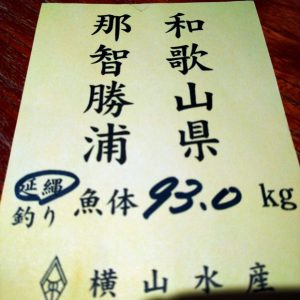 和歌山県
那智勝浦
延縄
釣り
魚体 93.0 kg
横山水産